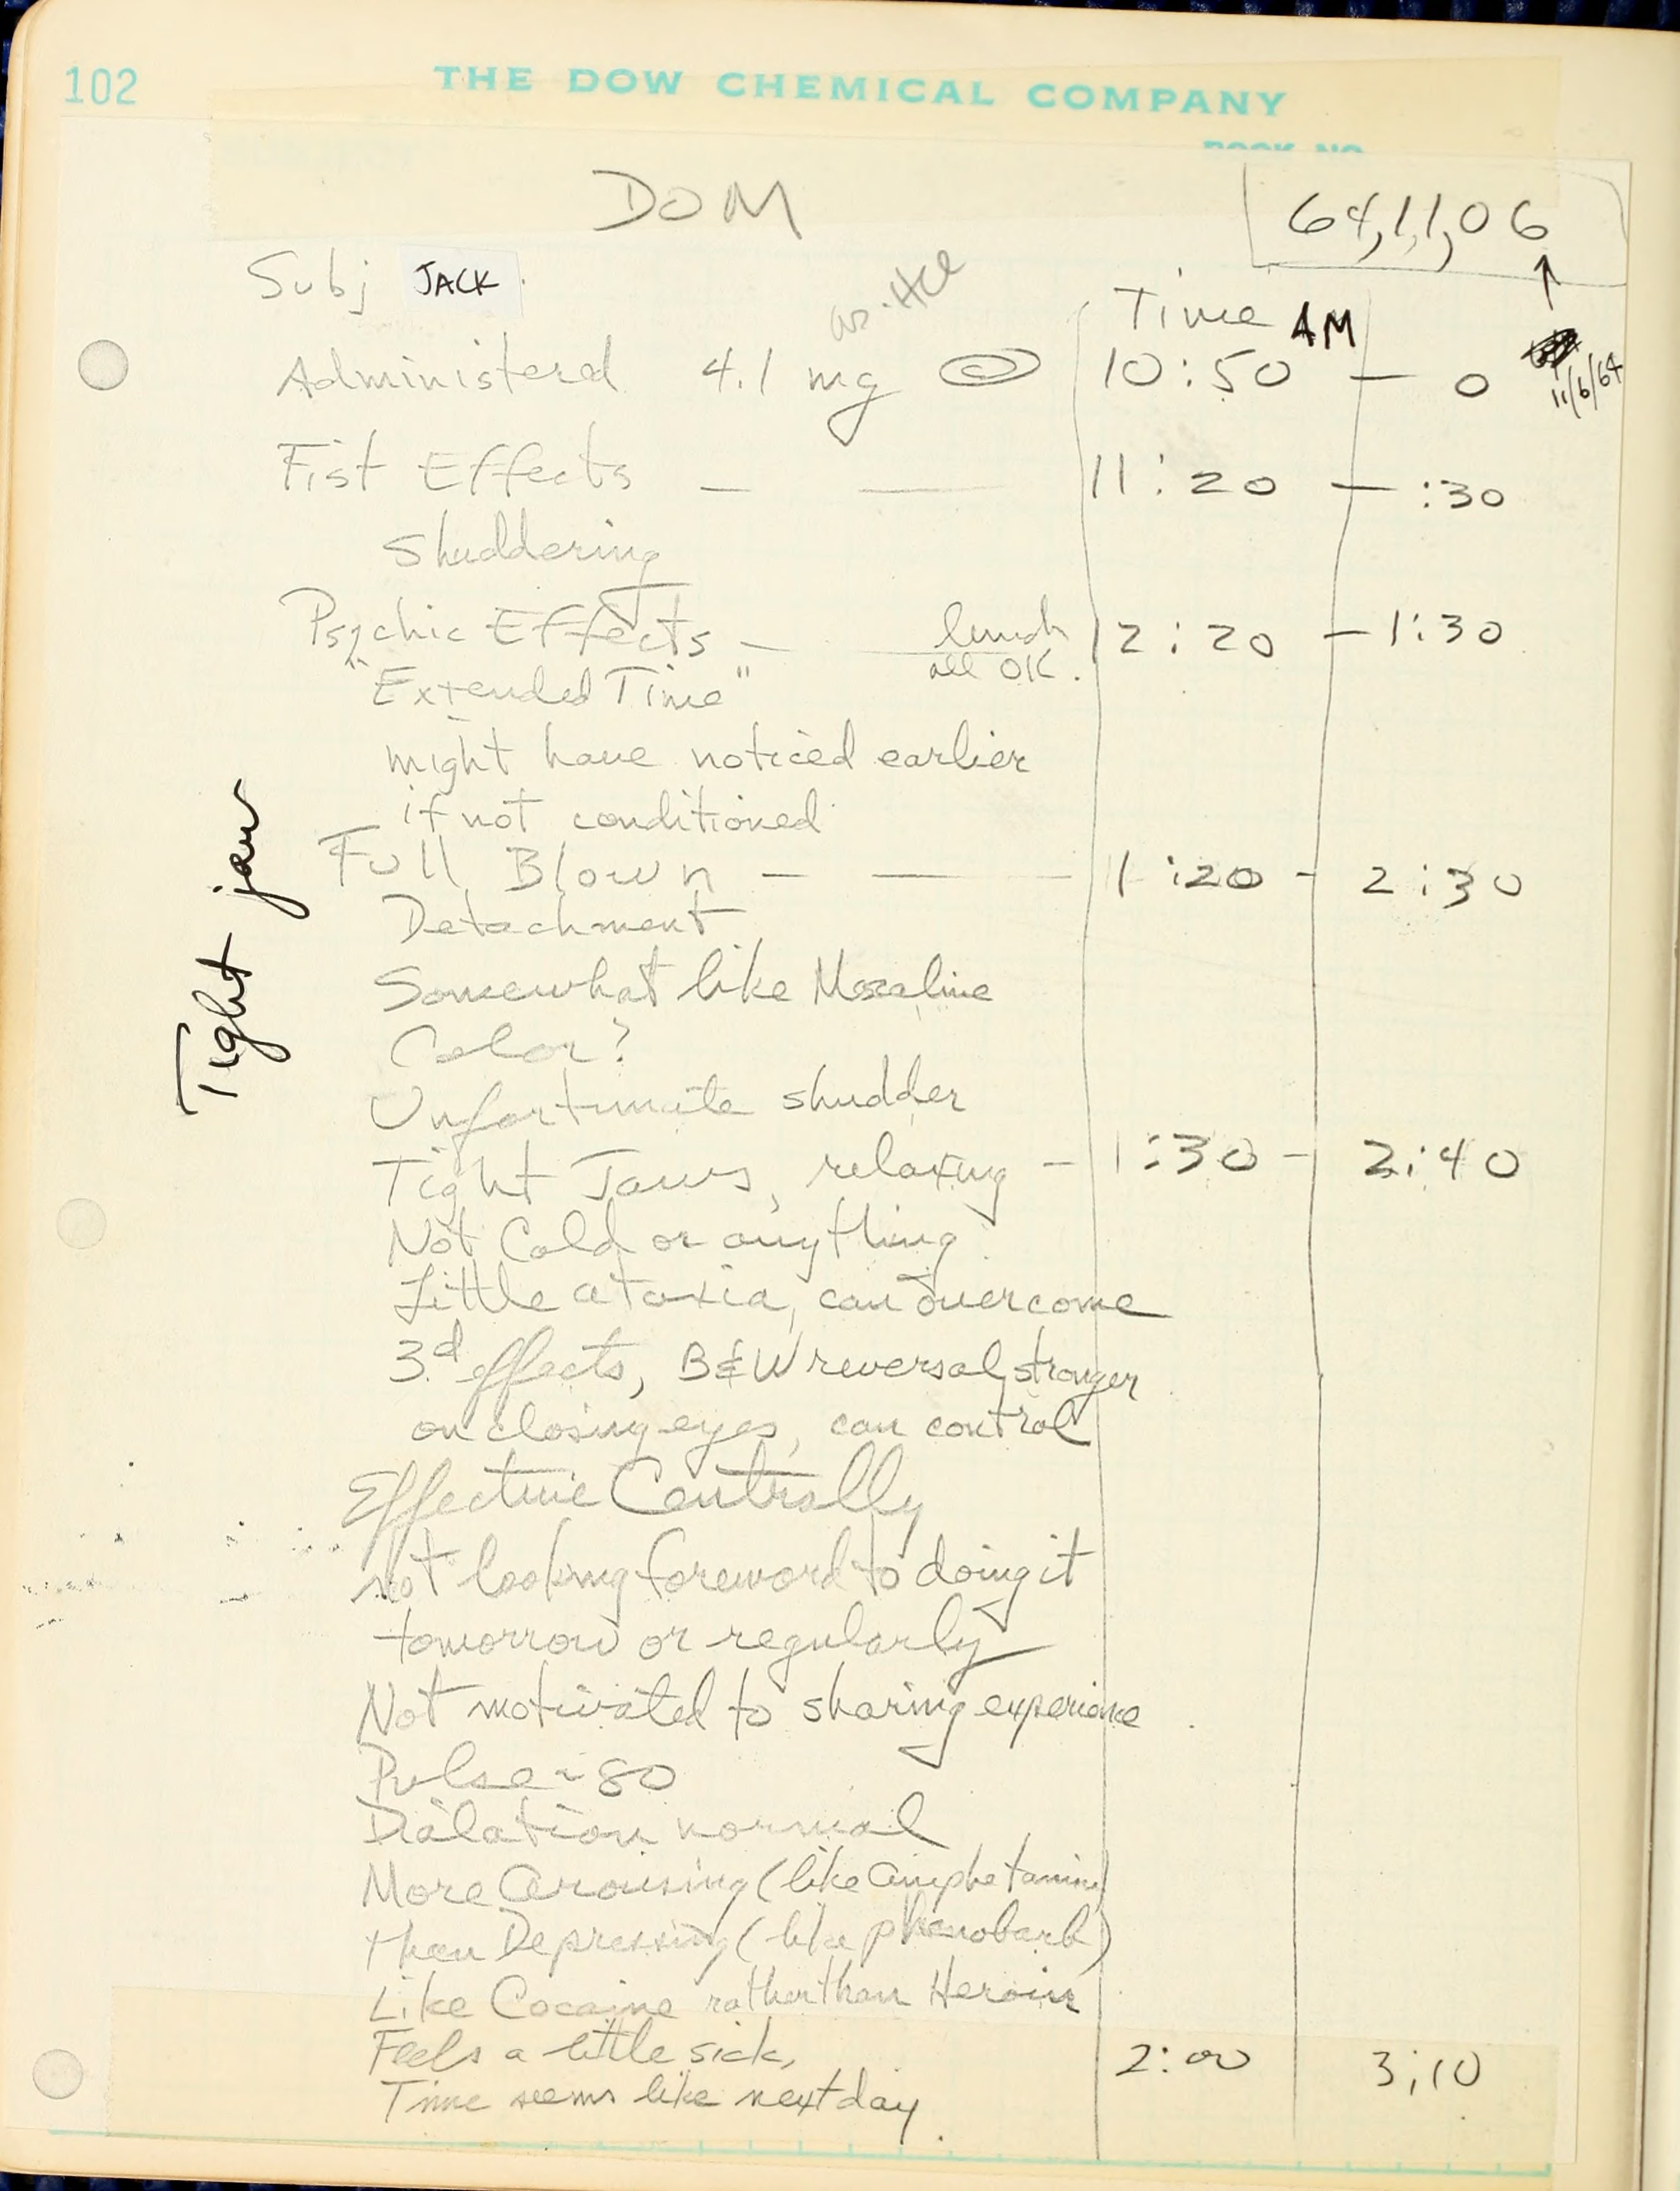 102
THE DOW CHEMICAL COMPANY
BOOK NO
DOM
64,11,06
Subj JACK
as HCl
Time AM
Administered 4.1 mg 10:50 — 0
11/6/64
Fist Effects — — 11:20 — :30
Shuddering
Psychic Effects — lunch 12:20 — 1:30
all OK.
"Extended Time"
might have noticed earlier
if not conditioned
Full Blown — — 1:20 - 2:30
Detachment
Somewhat like Mescaline
Color?
Unfortunate shudder
Tight Jaws, relaxing - 1:30 - 2:40
Tight jaw
Not Cold or anything
Little ataxia, can overcome
3d effects, B&W reversal, stronger
on closing eyes, can control
Effective Centrally
not looking foreword to doing it
tomorrow or regularly
Not motivated to sharing experience
Pulse ~ 80
Dialation normal
More Arousing (like Amphetamine)
than Depressing (like phenobarb)
Like Cocaine rather than Heroin
Feels a little sick, 2:00 3:10
Time seems like next day.